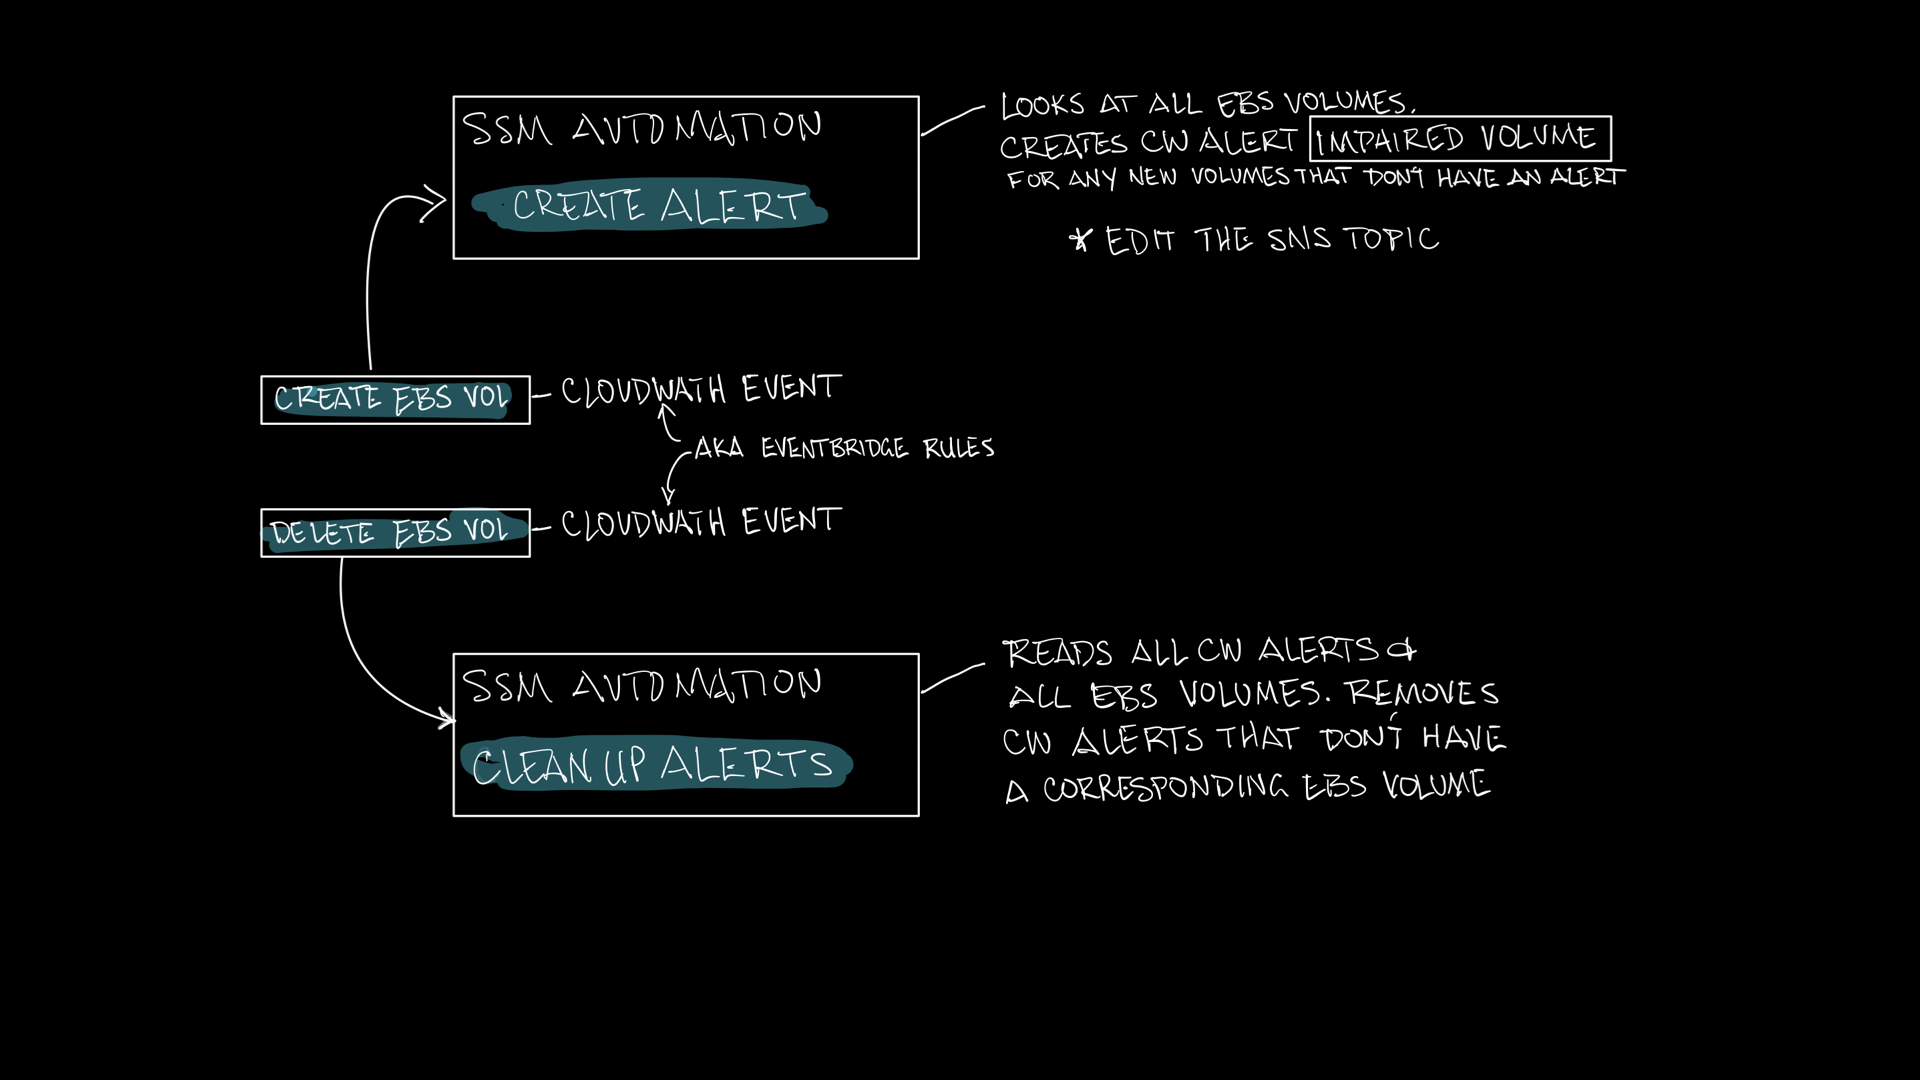 SSM AUTOMATION
CREATE ALERT
LOOKS AT ALL EBS VOLUMES.
CREATES CW ALERT IMPAIRED VOLUME
FOR ANY NEW VOLUMES THAT DON'T HAVE AN ALERT
* EDIT THE SNS TOPIC
CREATE EBS VOL - CLOUDWATH EVENT
AKA EVENTBRIDGE RULES
DELETE EBS VOL - CLOUDWATH EVENT
SSM AUTOMATION
CLEAN UP ALERTS
READS ALL CW ALERTS &
ALL EBS VOLUMES. REMOVES
CW ALERTS THAT DON'T HAVE
A CORRESPONDING EBS VOLUME